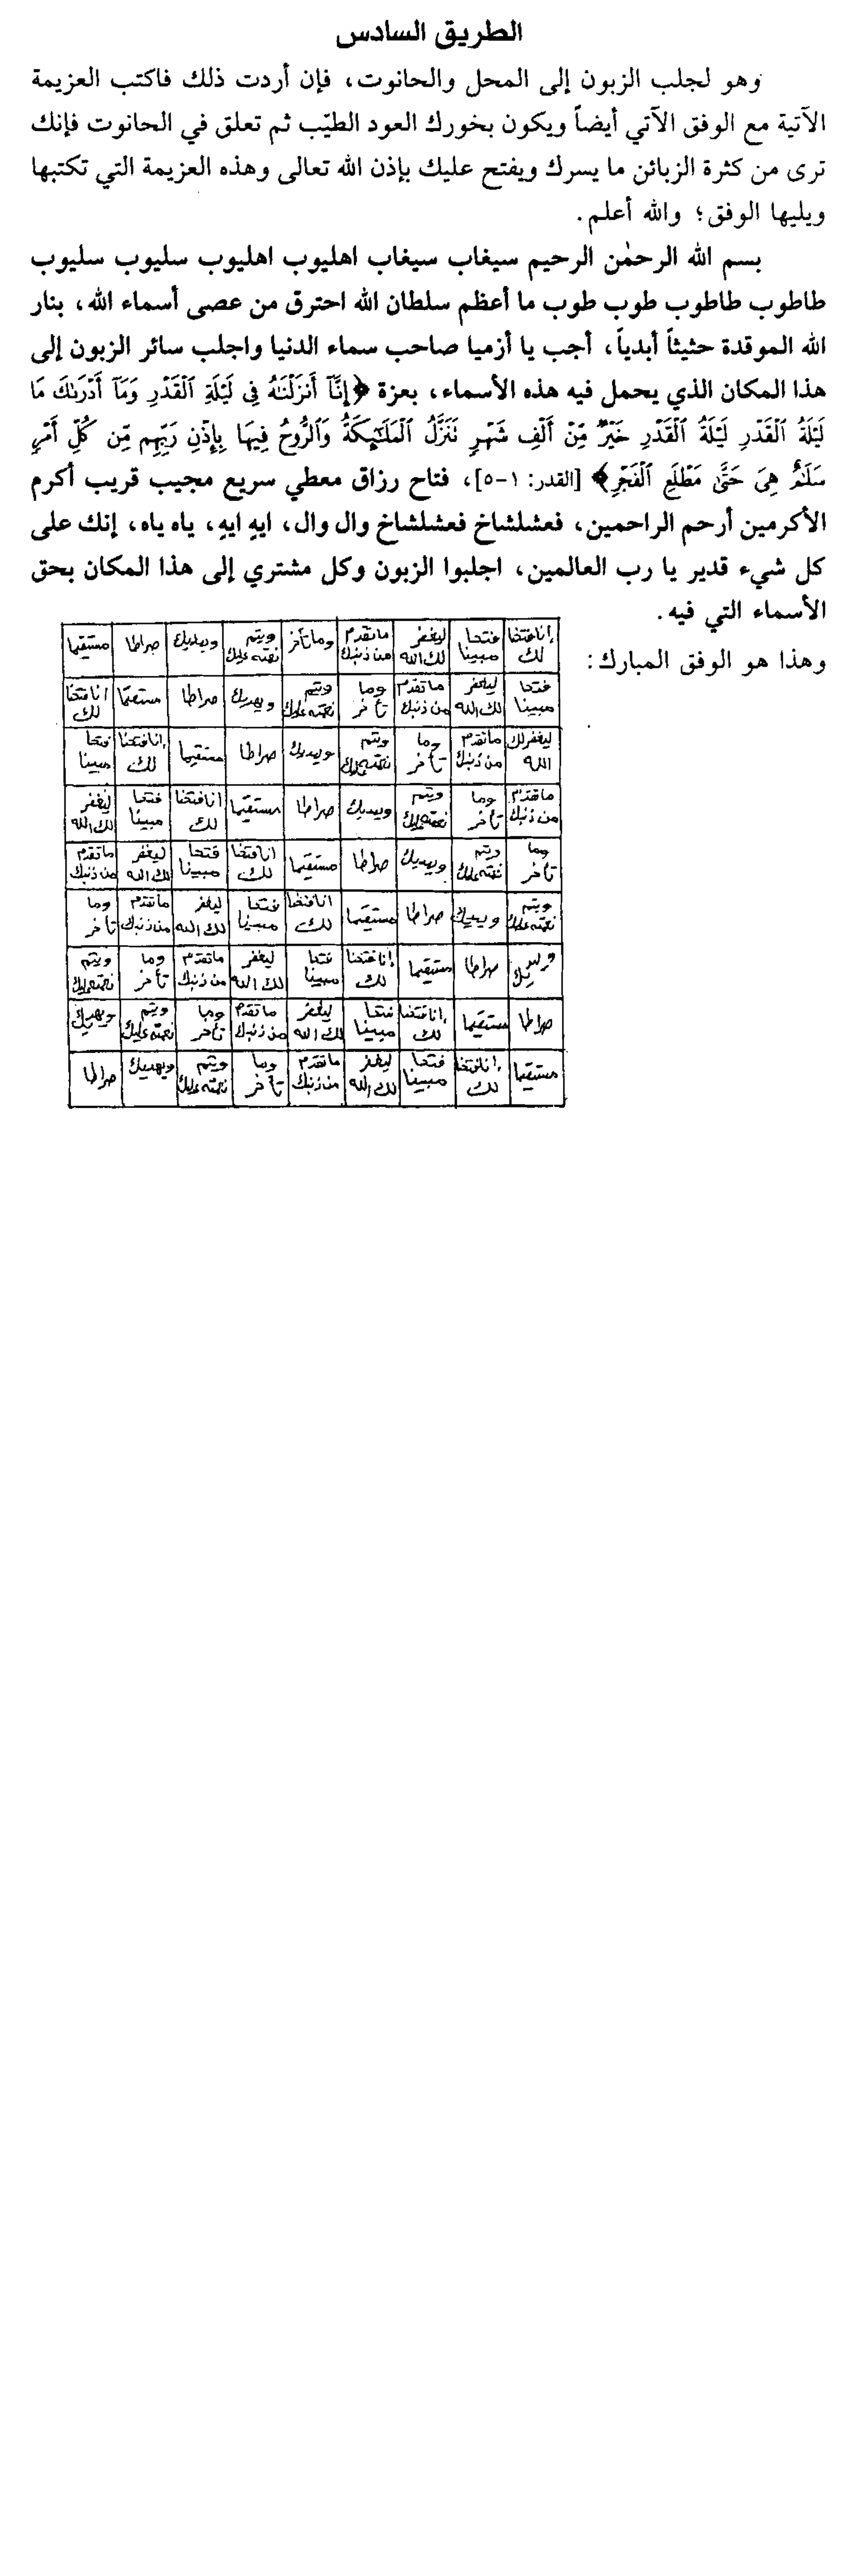 الطريق السادس
وهو لجلب الزبون إلى المحل والحانوت، فإن أردت ذلك فاكتب العزيمة
الآتية مع الوفق الآتي أيضاً ويكون بخورك العود الطيّب ثم تعلق في الحانوت فإنك
ترى من كثرة الزبائن ما يسرك ويفتح عليك بإذن الله تعالى وهذه العزيمة التي تكتبها
ويليها الوفق؛ والله أعلم.
بسم الله الرحمٰن الرحيم سيغاب سيغاب اهليوب اهليوب سليوب سليوب
طاطوب طاطوب طوب طوب ما أعظم سلطان الله احترق من عصى أسماء الله، بنار
الله الموقدة حثيثاً أبدياً، أجب يا أزميا صاحب سماء الدنيا واجلب سائر الزبون إلى
هذا المكان الذي يحمل فيه هذه الأسماء، بعزة ﴿إِنَّآ أَنزَلْنَٰهُ فِى لَيْلَةِ ٱلْقَدْرِ وَمَآ أَدْرَىٰكَ مَا
لَيْلَةُ ٱلْقَدْرِ لَيْلَةُ ٱلْقَدْرِ خَيْرٌ مِّنْ أَلْفِ شَهْرٍ تَنَزَّلُ ٱلْمَلَٰٓئِكَةُ وَٱلرُّوحُ فِيهَا بِإِذْنِ رَبِّهِم مِّن كُلِّ أَمْرٍ
سَلَٰمٌ هِىَ حَتَّىٰ مَطْلَعِ ٱلْفَجْرِ﴾ [القدر: ١-٥]، فتاح رزاق معطي سريع مجيب قريب أكرم
الأكرمين أرحم الراحمين، فعشلشاخ فعشلشاخ وال وال، ايهٍ ايهٍ، ياه ياه، إنك على
كل شيء قدير يا رب العالمين، اجلبوا الزبون وكل مشتري إلى هذا المكان بحق
الأسماء التي فيه.
وهذا هو الوفق المبارك:
إنا فتحنا لك فتحا مبينا ليغفر لك الله ما تقدم من ذنبك وما تأخر ويتم نعمته عليك ويهديك صراطا مستقيما
فتحا مبينا ليغفر لك الله ما تقدم من ذنبك وما تأخر ويتم نعمته عليك ويهديك صراطا مستقيما انا فتحنا لك
ليغفر لك الله ما تقدم من ذنبك وما تأخر ويتم نعمته عليك ويهديك صراطا مستقيما إنا فتحنا لك فتحا مبينا
ما تقدم من ذنبك وما تأخر ويتم نعمته عليك ويهديك صراطا مستقيما انا فتحنا لك فتحا مبينا ليغفر لك الله
وما تأخر ويتم نعمته عليك ويهديك صراطا مستقيما انا فتحنا لك فتحا مبينا ليغفر لك الله ما تقدم من ذنبك
ويتم نعمته عليك ويهديك صراطا مستقيما انا فتحنا لك فتحا مبينا ليغفر لك الله ما تقدم من ذنبك وما تأخر
صراطا مستقيما إنا فتحنا لك فتحا مبينا ليغفر لك الله ما تقدم من ذنبك وما تأخر ويتم نعمته عليك
صراطا مستقيما إنا فتحنا لك فتحا مبينا ليغفر لك الله ما تقدم من ذنبك وما تأخر ويتم نعمته عليك ويهديك
مستقيما إنا فتحنا لك فتحا مبينا ليغفر لك الله ما تقدم من ذنبك وما تأخر ويتم نعمته عليك ويهديك صراطا